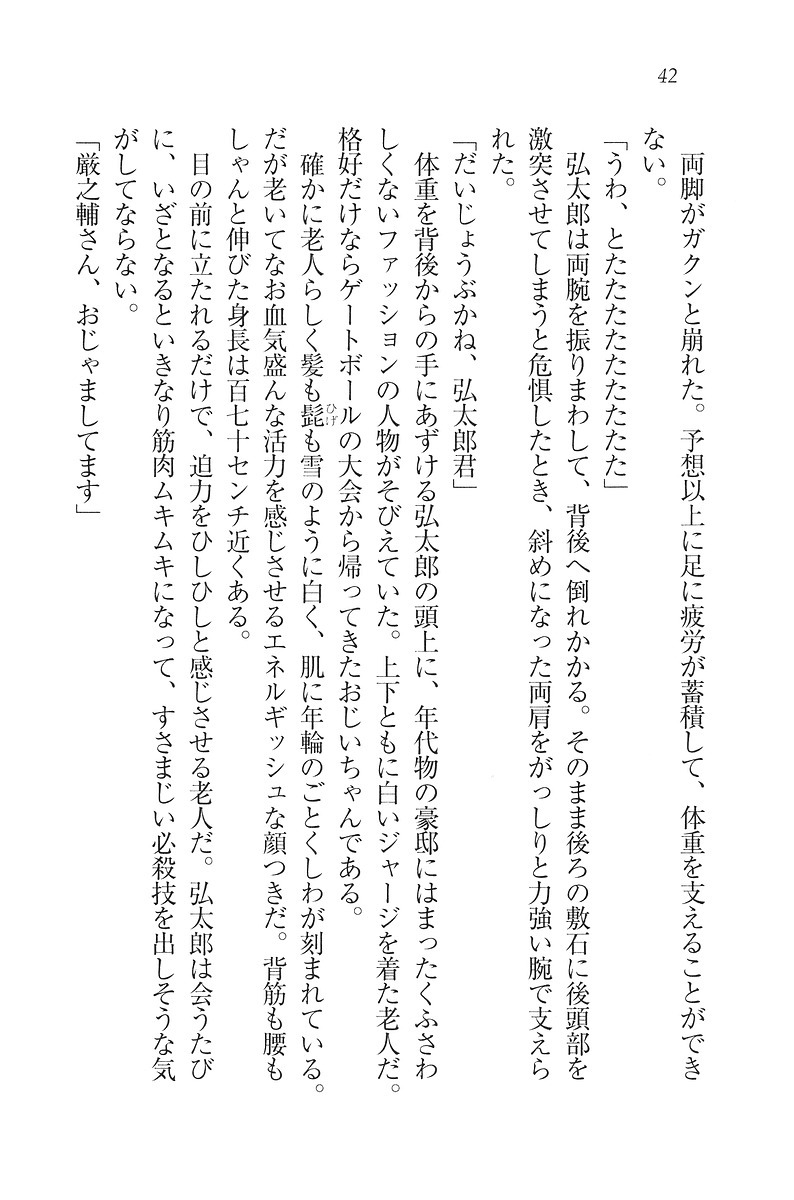 42
　両脚がガクンと崩れた。予想以上に足に疲労が蓄積して、体重を支えることができ
ない。
「うわ、とたたたたたたたた」
　弘太郎は両腕を振りまわして、背後へ倒れかかる。そのまま後ろの敷石に後頭部を
激突させてしまうと危惧したとき、斜めになった両肩をがっしりと力強い腕で支えら
れた。
「だいじょうぶかね、弘太郎君」
　体重を背後からの手にあずける弘太郎の頭上に、年代物の豪邸にはまったくふさわ
しくないファッションの人物がそびえていた。上下ともに白いジャージを着た老人だ。
格好だけならゲートボールの大会から帰ってきたおじいちゃんである。
　確かに老人らしく髪も髭ひげも雪のように白く、肌に年輪のごとくしわが刻まれている。
だが老いてなお血気盛んな活力を感じさせるエネルギッシュな顔つきだ。背筋も腰も
しゃんと伸びた身長は百七十センチ近くある。
　目の前に立たれるだけで、迫力をひしひしと感じさせる老人だ。弘太郎は会うたび
に、いざとなるといきなり筋肉ムキムキになって、すさまじい必殺技を出しそうな気
がしてならない。
「厳之輔さん、おじゃましてます」